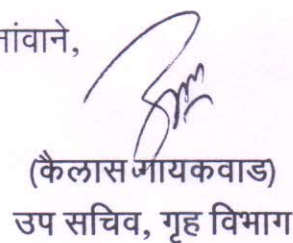 नांवाने,
(कैलास गायकवाड)
उप सचिव, गृह विभाग